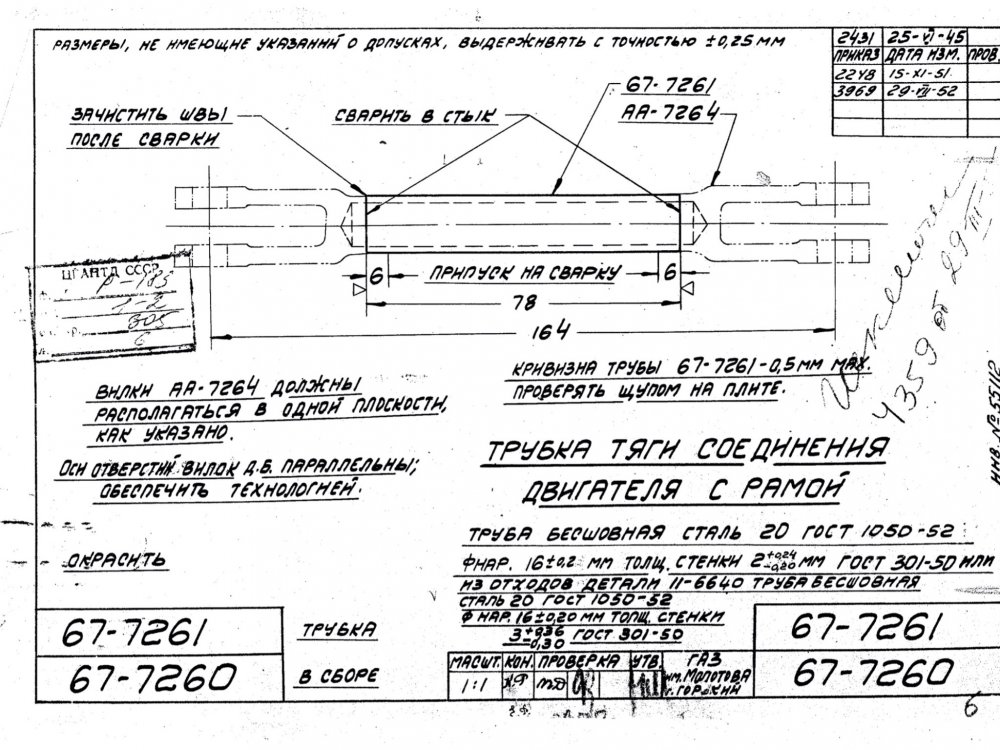 РАЗМЕРЫ, НЕ ИМЕЮЩИЕ УКАЗАНИЙ О ДОПУСКАХ, ВЫДЕРЖИВАТЬ С ТОЧНОСТЬЮ ±0,25 ММ
2431 25-VI-45
ПРИКАЗ ДАТА ИЗМ. ПРОВ.
2248 15-XI-51.
3969 29-VIII-52
67-7261
АА-7264
ЗАЧИСТИТЬ ШВЫ
ПОСЛЕ СВАРКИ
СВАРИТЬ В СТЫК
6 ПРИПУСК НА СВАРКУ 6
78
164
ЦГАНТД СССР
1-2
305
6
4359 от 29
ИНВ. №
КРИВИЗНА ТРУБЫ 67-7261-0,5ММ МАХ.
ПРОВЕРЯТЬ ЩУПОМ НА ПЛИТЕ.
ВИЛКИ АА-7264 ДОЛЖНЫ
РАСПОЛАГАТЬСЯ В ОДНОЙ ПЛОСКОСТИ,
КАК УКАЗАНО.
ОСИ ОТВЕРСТИЙ ВИЛОК Д.Б. ПАРАЛЛЕЛЬНЫ;
ОБЕСПЕЧИТЬ ТЕХНОЛОГИЕЙ.
ОКРАСИТЬ
ТРУБКА ТЯГИ СОЕДИНЕНИЯ
ДВИГАТЕЛЯ С РАМОЙ
ТРУБА БЕСШОВНАЯ СТАЛЬ 20 ГОСТ 1050-52
ФНАР. 16±0,2 ММ ТОЛЩ. СТЕНКИ 2+0,24-0,20 ММ ГОСТ 301-50 ИЛИ
ИЗ ОТХОДОВ ДЕТАЛИ 11-6640 ТРУБА БЕСШОВНАЯ
СТАЛЬ 20 ГОСТ 1050-52
Ф НАР. 16±0,20 ММ ТОЛЩ. СТЕНКИ
3+0,36-0,30 ГОСТ 301-50
67-7261 ТРУБКА 67-7261
67-7260 В СБОРЕ 67-7260
МАСШТ. КОН. ПРОВЕРКА УТВ.
1:1
ГАЗ
им. МОЛОТОВА
г. ГОРЬКИЙ
6